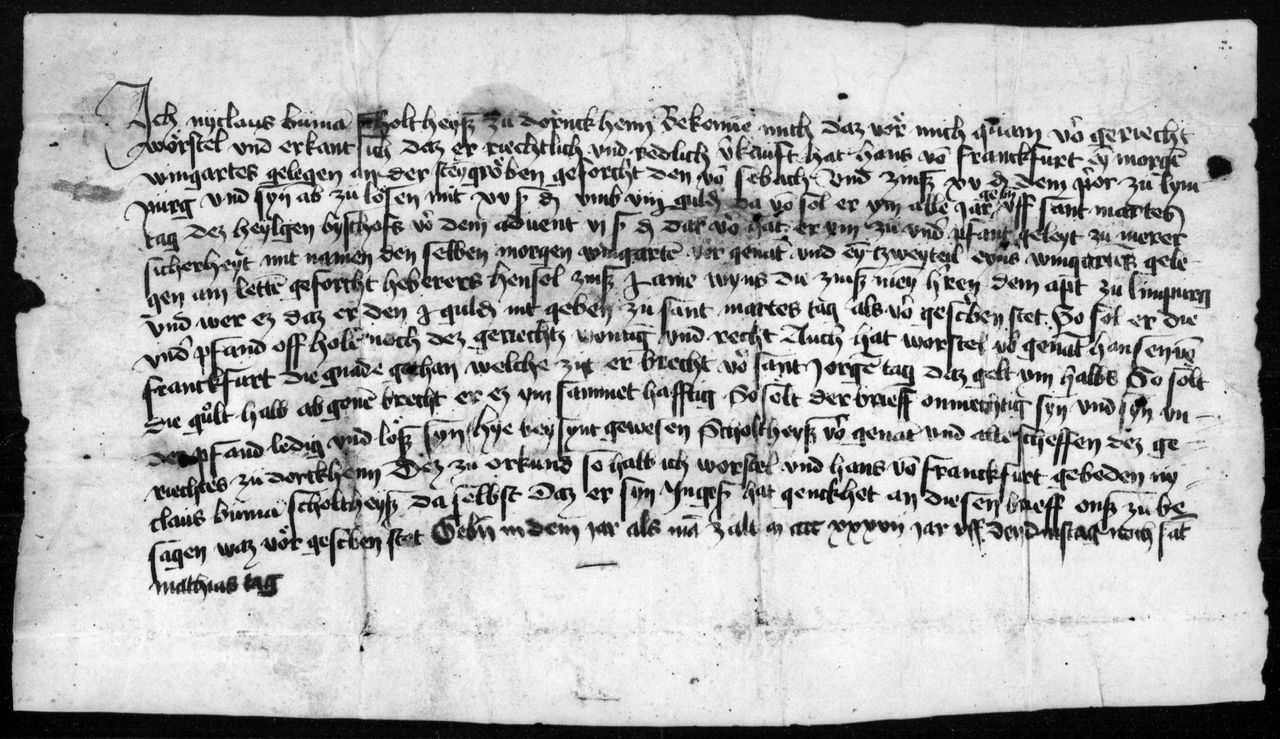 Ich nyclaus buma Scholtheyß zu dornckheim Bekenne mich daz vor mich quam vō geriecht
worstel vnd erkant sich daz er riechtlich vnd redlich v̄kauft hat hans vō Franckfurt ey morgē
wingartes gelegen an der steygroben geforcht den vō sebach vnd zinß xv ₰ dem p̄or zu lym
purg vnd syn ab zu losen mit xv ß ₰ vmb viij guld da vō sol er ym alle Jar geb̄n vff sant martes
tag dez heylgen byschofs vō dem advent vi ß ₰ dar vō hat er ym zu vnd̄ pfant geleyt zu merer
sicherheyt mit namen den selben morgen wingartē vor genāt vnd ey tzweyteil eyns wingartes gele-
gen am lettē geforcht heberers hensel zinß j ame wyns die zinß mey h̄ren dem apt zu limpurg
vnd wer ez daz er den j guld nit geben zu sant martes tag als vō gesc̄ben stet So sol er die
vnd̄ pfand off holē noch dez geriechtz wonūg vnd recht Auch hat worstel vō genāt hansen vō
Franckfurt die gnade gethan welche zijt er brecht vō sant Jorgē tag daz gelt ym halbs So solt
die gult halb ab gonē brecht er ez ym sammet hafftig So solt der brieff onmechtig syn vnd syn vn-
der pfand ledig vnd loß syn hye bey synt gewesen Scholtheyß vō genāt vnd alle scheffen dez ge-
riechtes zu dorckheim Dez zu orkund so hab ich worstel vnd hans vō franckfurt gebeden ny
claus buma scholtheyß da selbst Daz er syn Ingeß hat gehenckhet an diesen brieff onß zu be
sagen waz vor gesc̄ben stet Geb̄n in dem jar als mā zalt m cccc xxxvii jar vff den dinstag noch sāt
mathias tag